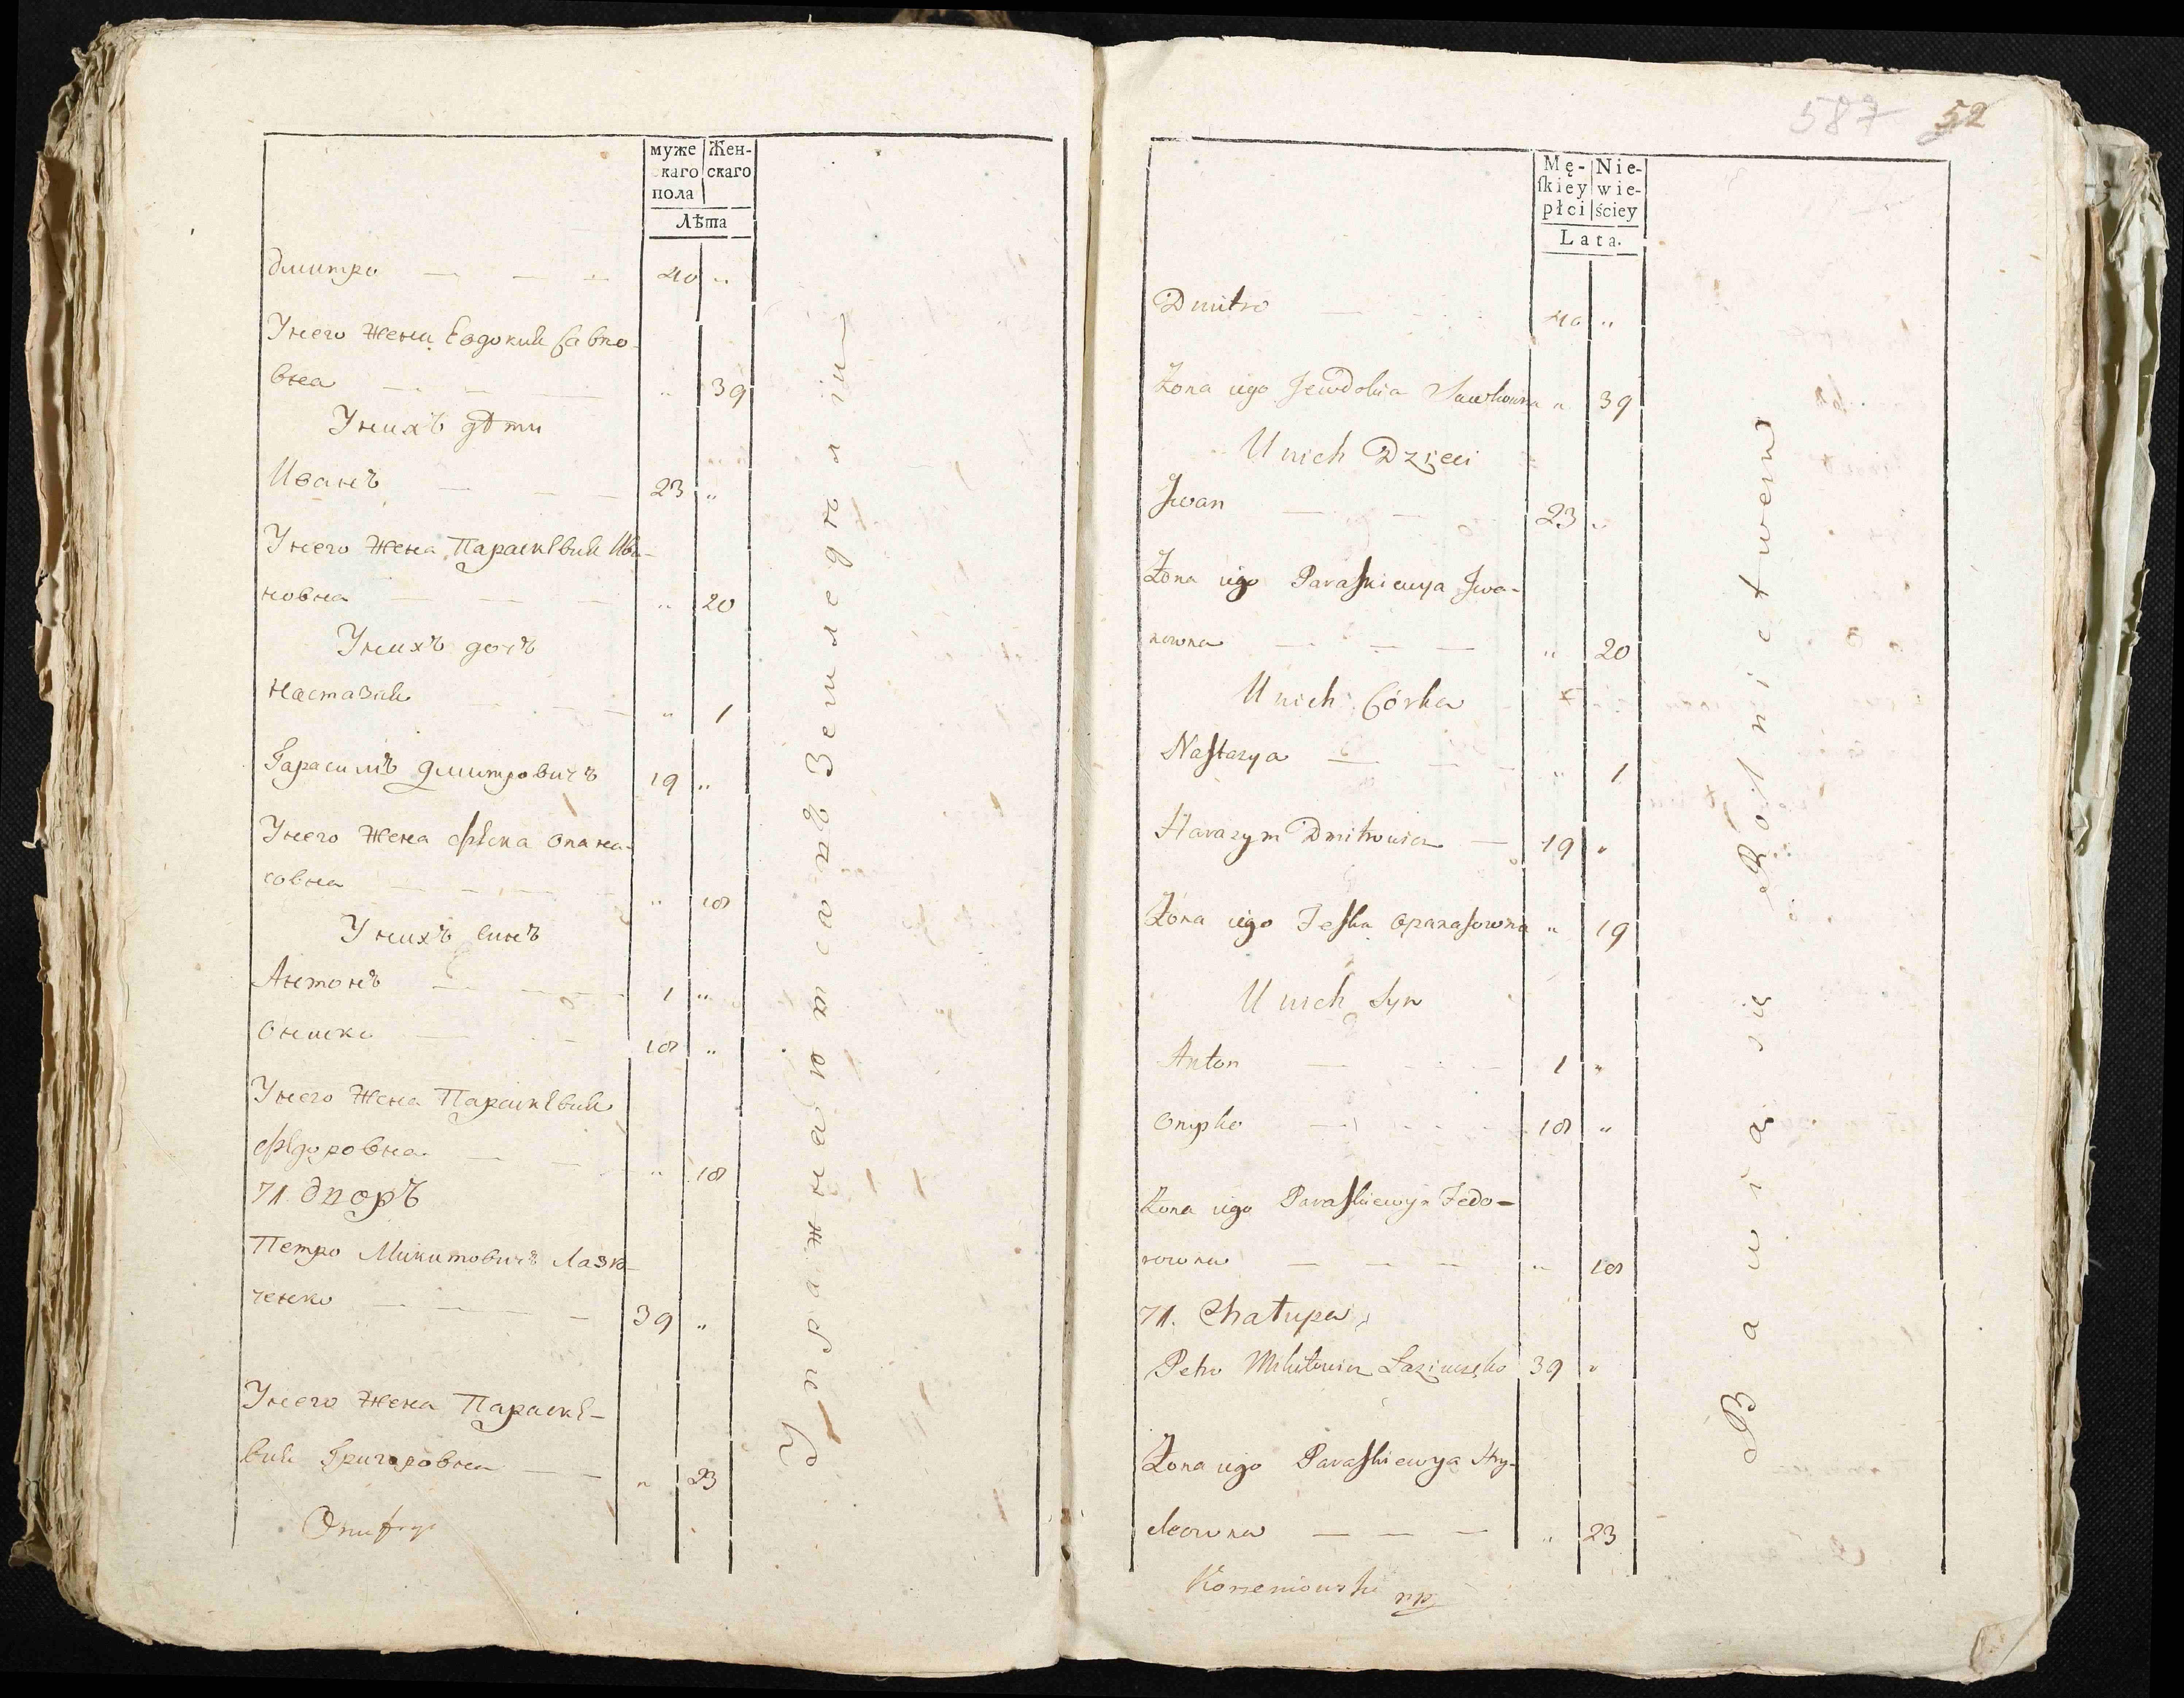 муже Жен-
скаго скаго
пола
Лѣта
Дмитро — — — 40 "
Унего Жена Евдокия Савко-
вна — — — " 39
Унихъ дѣти
Иванъ — — — 23 "
Унего жена Параскѣвия Ива-
новна — — — " 20
Унихъ дочъ
Настазия — — — " 1
Гарасимъ Дмитровичъ 19 "
Унего Жена Фѣска Опана-
совна — — — " 18
Унихъ синъ
Антонъ — — — 1 "
Онишко — — — 18 "
Унего Жена Параскѣвия
Фѣдоровна — — " 18
71. Дворъ
Петро Микитовичъ Лазю-
ченко — — — 39 "
Унего жена Параскѣ-
вия Григоровна — — " 23
Onufry
Упражнаются въ Земледѣлiи
587 52
Mę- Nie-
skiey wie-
płci ściey
Lata.
Dmitro — — — 40 "
Żona iego Jewdokia Sawkowna " 39
U nich Dzieci
Jwan — — — 23 "
Żona iego Paraskiewya Jwa-
nowna — — — " 20
U nich Córka
Nastazya — — — " 1
Harazym Dmitrowicz — 19 "
Żona iego Feska Opanasowna " 19
U nich Syn
Anton — — — 1 "
Onysko — — — 18 "
Żona iego Paraskiewya Fedo-
rowna — — — " 18
71. Chałupa
Petro Mikitowicz Laziuczęko 39 "
Żona iego Paraskiewya Hry-
chorowna — — — " 23
Korzeniowski mp
Bawią się Rolnictwem